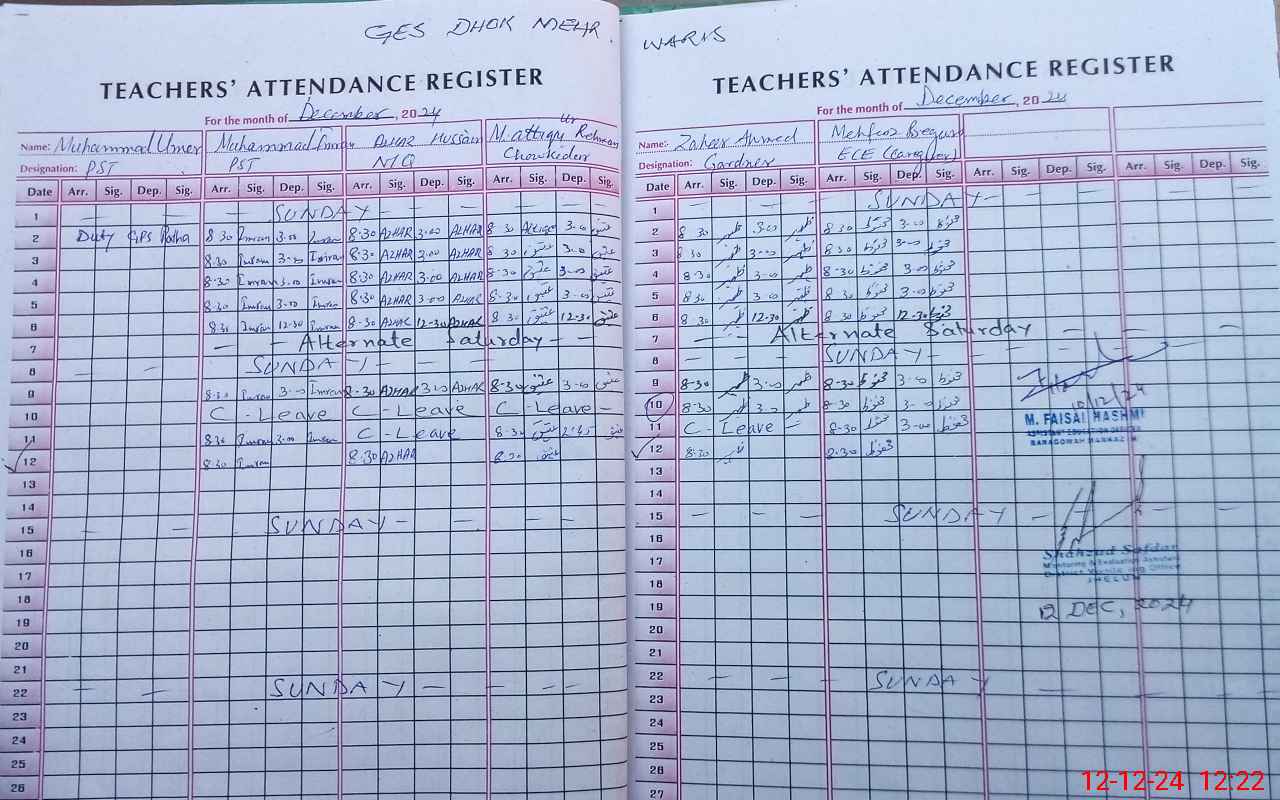 GES DHOK MEHR WARIS
TEACHERS' ATTENDANCE REGISTER
For the month of December, 2024
Name: Muhammad Umer Muhammad Imran AZHAR HUSSAIN M. attiqu Ur Rehman
Designation: PST PST N/Q Chowkidar
Date Arr. Sig. Dep. Sig. Arr. Sig. Dep. Sig. Arr. Sig. Dep. Sig. Arr. Sig. Dep. Sig.
1 — — — SUNDAY — — — —
2 Duty GPS 8 30 Imran 3.00 Imran 8.30 AZHAR 3.00 AZHAR 8 30 3.00 عتیق
3 8.30 Imran 3.00 Imran 8.30 AZHAR 3.00 AZHAR 8 30 عتیق 3.00 عتیق
4 8.30 Imran 3.00 Imran 8.30 AZHAR 3.00 AZHAR 8-30 عتیق 3-00 عتیق
5 8.30 Imran 3-00 Imran 8.30 AZHAR 3.00 AZHAR 8-30 عتیق 3-00 عتیق
6 8.30 Imran 12-30 Imran 8-30 AZHAR 12-30 AZHAR 8 30 عتیق 12-30 عتیق
7 — — Alternate Saturday — —
8 — — SUNDAY —
9 8-30 Imran 3-00 Imran 8-30 AZHAR 3.00 AZHAR 8-30 عتیق 3-00 عتیق
10 C - Leave C - Leave C - Leave —
11 8.30 Imran 3.00 Imran C - Leave 8-30 عتیق 2:45 عتیق
12 8.30 Imran 8.30 AZHAR 8.30 عتیق
13
14
15 — — SUNDAY — — — —
16
17
18
19
20
21
22 — — SUNDAY — — — —
23
24
25
26
TEACHERS' ATTENDANCE REGISTER
For the month of December, 2024
Name: Zaheer Ahmed Mehfooz Begum
Designation: Gardner ECE (Caregiver)
Date Arr. Sig. Dep. Sig. Arr. Sig. Dep. Sig. Arr. Sig. Dep. Sig. Arr. Sig. Dep. Sig.
1 — — — — SUNDAY — — — — — — —
2 8 30 ظہیر 3.00 ظہیر 8.30 محفوظ 3-00 محفوظ
3 8 30 ظہیر 3-00 ظہیر 8.30 محفوظ 3-00 محفوظ
4 8-30 ظہیر 3-00 ظہیر 8-30 محفوظ 3.00 محفوظ
5 8-30 ظہیر 3 00 ظہیر 8 30 محفوظ 3-00 محفوظ
6 8-30 ظہیر 12-30 ظہیر 8 30 محفوظ 12-30 محفوظ
7 — — Alternate Saturday — — — —
8 — — — SUNDAY —
9 8-30 ظہیر 3-00 ظہیر 8-30 محفوظ 3-00 محفوظ
10 8-30 ظہیر 3.0 ظہیر 8-30 محفوظ 3-00 محفوظ
11 C - Leave — 8-30 محفوظ 3-00 محفوظ
12 8-30 ظہیر 8.30 محفوظ
13
14
15 — — — — SUNDAY — — — — —
16
17
18
19
20
21
22 — — — — SUNDAY — — — — —
23
24
25
26
27
10/12/24
M. FAISAL HASHMI
ASSISTANT EDUCATION OFFICER
Shahzad Safdar
Monitoring & Evaluation Assistant
District Monitoring Office
JHELUM
12 DEC, 2024
12-12-24 12:22